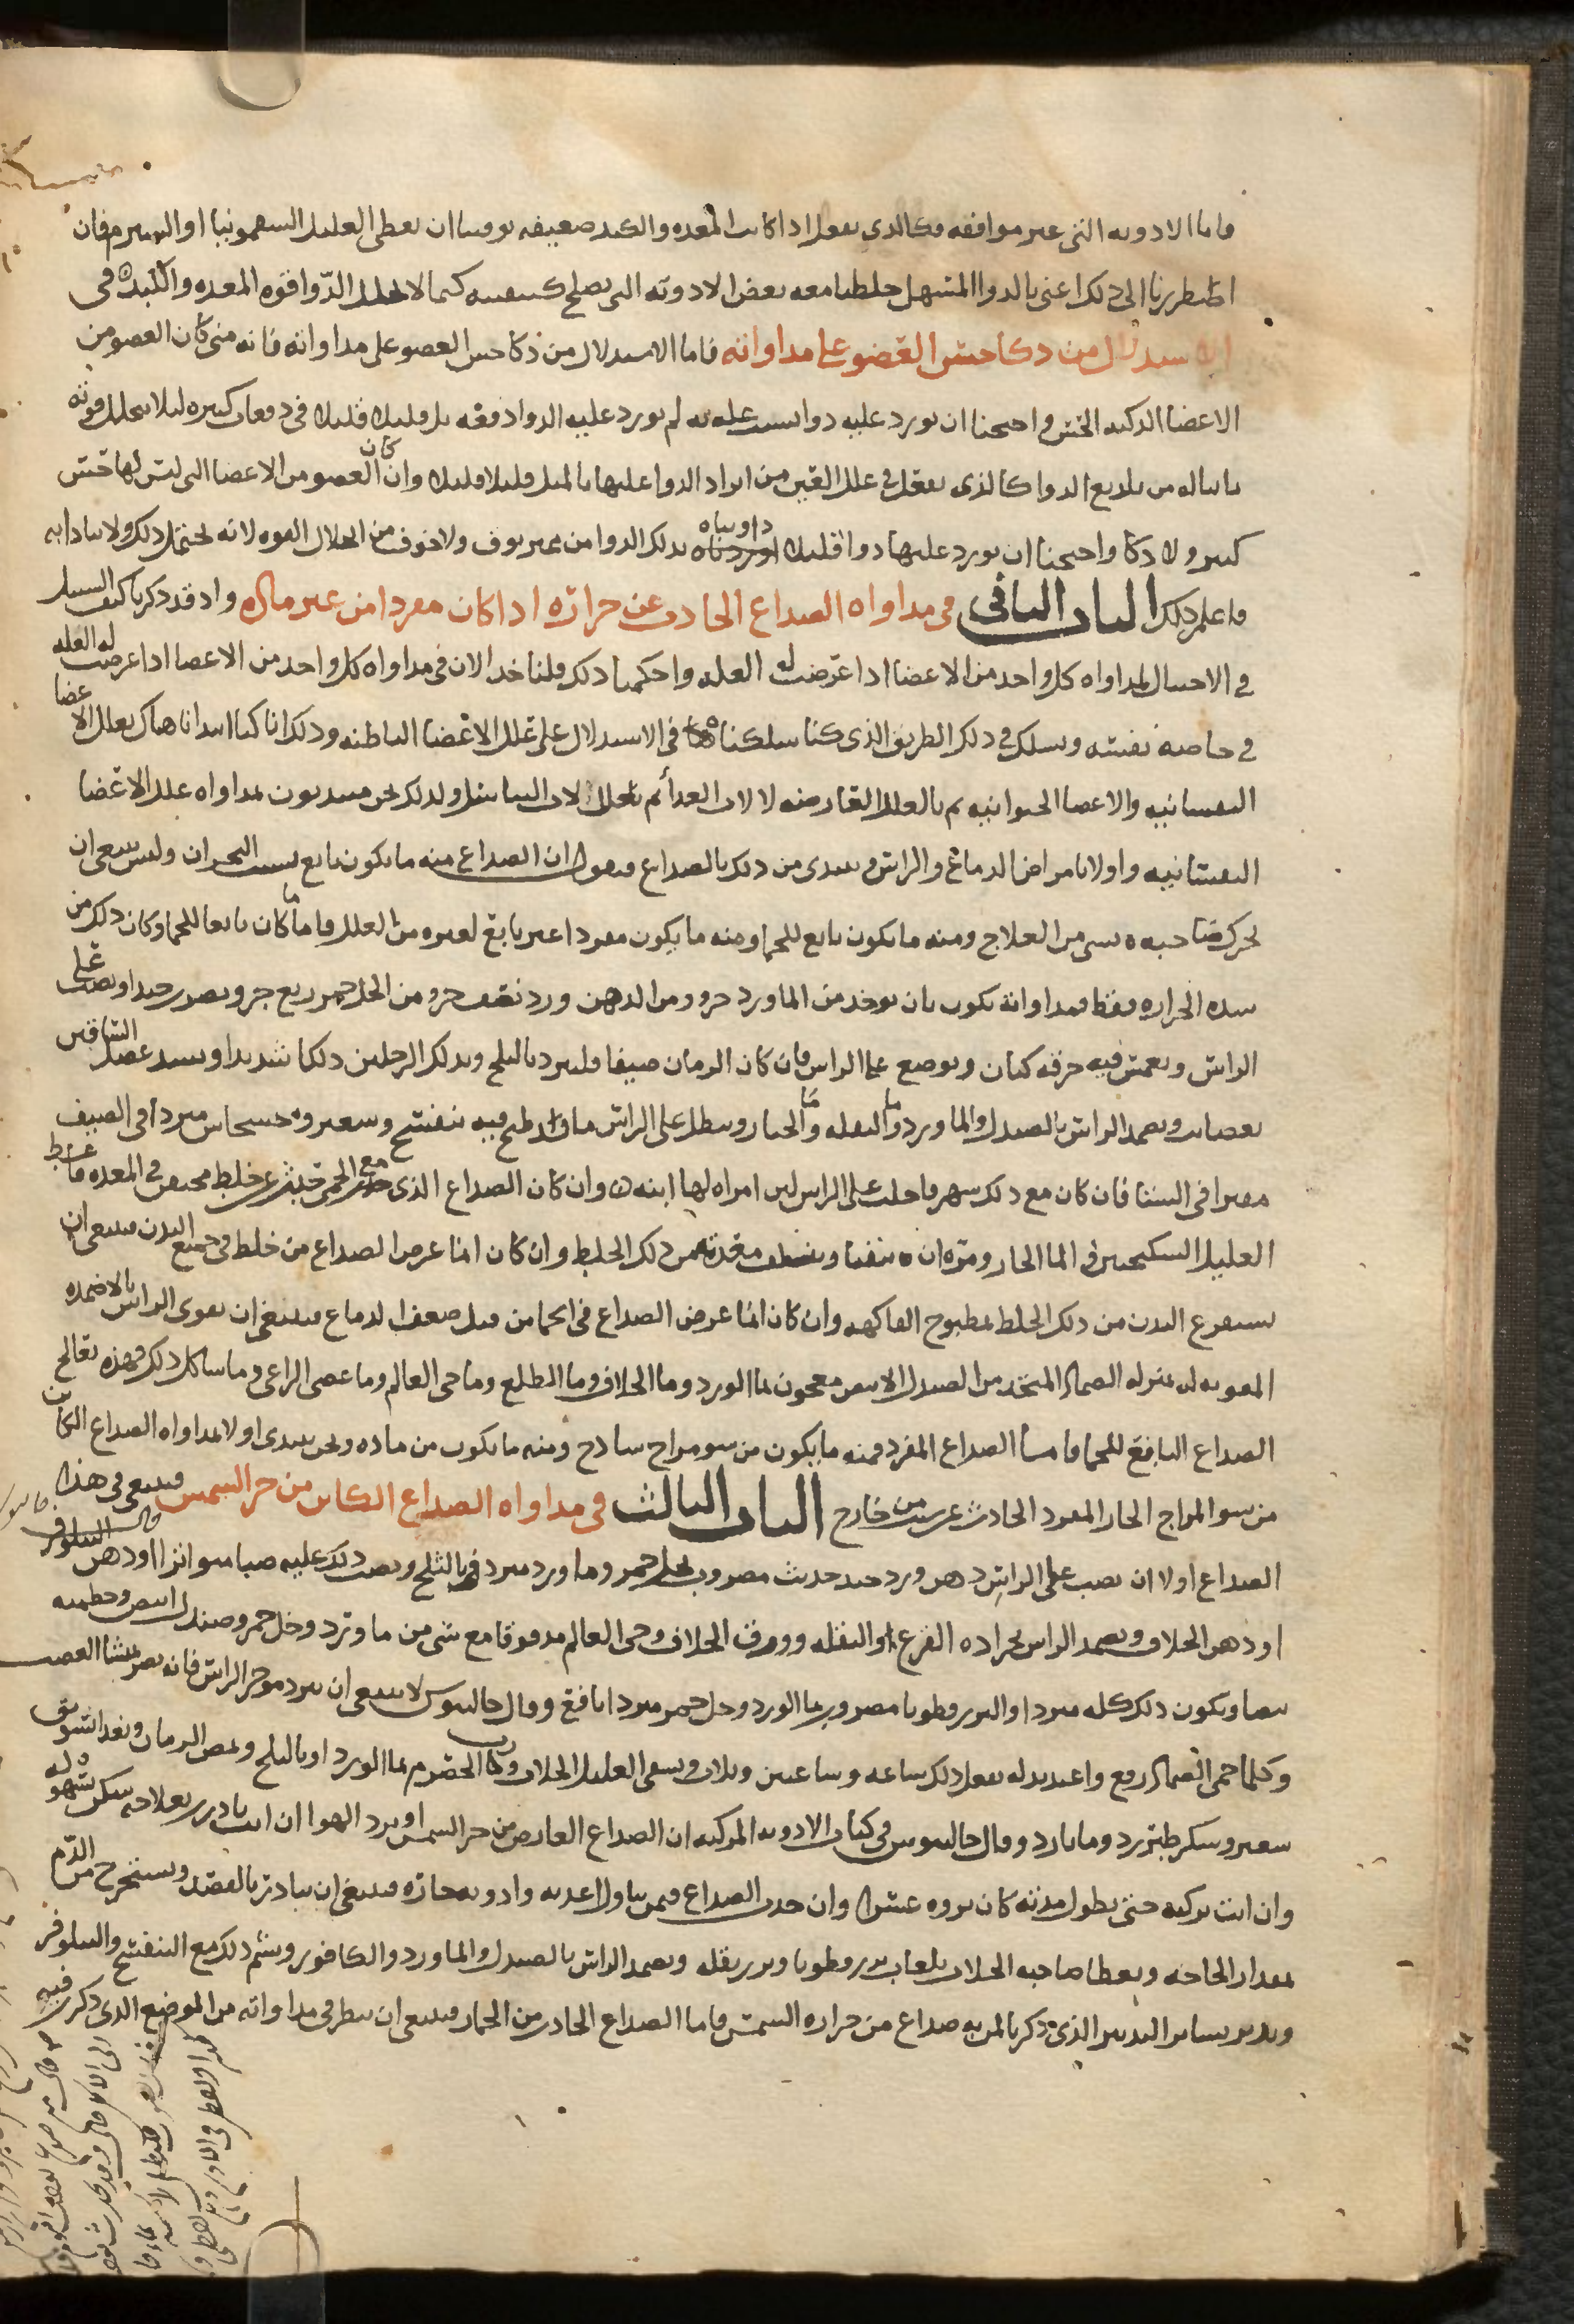 فاما الادويه التي غير موافقه فكالذي نفعل اذا كانت المعده والكبد ضعيفه توقينا ان نعطي العليل السقمونيا او الشبرم فان
اضطررنا الى ذلك اعني بالدوا المسهل خلطنا معه بعض الادويه التي تصلح كيفيته كيما لا تحلل الدوا قوه المعده والكبد في
الاستدلال من ذكا حس العضو على مداواته فاما الاستدلال من ذكا حس العضو على مداواته فانه متى كان العضو من
الاعضا الذكيه الحس واحتجنا ان نورد عليه دوا لم نورد عليه الدوا دفعه بل قليلا قليلا في دفعات كثيره ليلا تتحلل قوته
بما يناله من تلذيع الدوا كالذي نفعل في علل العين من ايراد الدوا عليها بالميل قليلا قليلا وان كان العضو من الاعضا التي ليس لها حس
كثير ولا ذكا واحتجنا ان نورد عليها دوا داويناه بذلك الدوا من غير توق ولا خوف من انحلال القوه لانه يحتمل ذلك ولا يتاذا به
فاعلم ذلك الباب الثاني في مداواه الصداع الحادث عن حراره اذا كان مفردا من غير ماده واذ قد ذكرنا كيف السبيل
في الاحتيال لمداواه كل واحد من الاعضا اذا عرضت له العله واحكمنا ذلك قلناخذ الان في مداواه كل واحد من الاعضا اذا عرضت له العله
في خاصه نفسه ونسلك في ذلك الطريق الذي كنا سلكناه في الاستدلال على علل الاعضا الباطنه وذلك انا كنا ابتدانا هناك بعلل الاعضا
النفسانيه والاعضا الحيوانيه ثم بالعلل العارضه لالات الغدا ثم بعلل الات التناسل ولذلك نحن مبتديون بمداواه علل الاعضا
النفسانيه واولا بامراض الدماغ والراس ونبتدي من ذلك بالصداع فنقول ان الصداع منه ما يكون تابع بسبب البحران وليس ينبغي ان
تحرك صاحبه بشي من العلاج ومنه ما يكون تابع للحما ومنه ما يكون مفردا غير تابع لغيره من العلل فاما ما كان تابعا للحما وكان ذلك من
شده الحراره فقط فمداواته تكون بان يوخذ من الماورد جزو ومن الدهن ورد نصف جزو من الخل خمر ربع جزو ويضرب جيدا ويصب على
الراس ويغمس فيه خرقه كتان ويوضع على الراس فان كان الزمان صيفا فليبرد بالثلج ويدلك الرجلين دلكا شديدا ويشد عضل الساقين
بعصايب ويضمد الراس بالصندل والماورد وما البقله وما الخيار وينطل على الراس ما قد طبخ فيه بنفسج وشعير وخشخاش مبردا في الصيف
مفترا في الشتا فان كان مع ذلك سهر فاحلب على الراس لبن امراه لها ابنه وان كان الصداع الذي مع الحمى حدث عن خلط محتقن في المعده فاعط
العليل السكنجبين في الما الحار ومره ان يتقيا وينظف معدته من ذلك الخلط وان كان انما عرض الصداع من خلط في جميع البدن فينبغي ان
يستفرغ البدن من ذلك الخلط بمطبوخ الفاكهه وان كان انما عرض الصداع في الحما من قبل ضعف الدماغ فينبغي ان تقوي الراس بالاضمده
المقويه له بمنزله الضماد المتخذ من الصندل الابيض معجون بما الورد وما الخلاف وما الطلع وما حي العالم وما عصى الراعي وما شاكل ذلك فهذه تعالج
الصداع التابع للحما فاما الصداع المفرد فمنه ما يكون من سو مزاج ساذج ومنه ما يكون من ماده ونحن نبتدي اولا بمداواه الصداع الكاين
من سو المزاج الحار المفرد الحادث عن سبب من خارج الباب الثالث في مداواه الصداع الكاين من حر الشمس فينبغي في هذا
الصداع اولا ان يصب على الراس دهن ورد جيد حديث مضروب بخل خمر وماورد مبرد بالثلج ويصب ذلك عليه صبا متواترا او دهن النيلوفر
او دهن الخلاف ويضمد الراس بجراده القرع او البقله وورق الخلاف وحي العالم مدقوقا مع شي من ماورد وخل خمر وصندل ابيض وخطميه
بيضا ويكون ذلك كله مبردا والبزرقطونا مضروب بما الورد وخل خمر مبردا نافع وقال جالينوس لا ينبغي ان يبرد موخر الراس فانه يضر بمنشا العصب
وكلما حمى الضماد رفع واعيد بدله يفعل ذلك ساعه وساعتين وثلاث ويسقى العليل الجلاب ورب الحصرم بما الورد او بالثلج ويمص الرمان ويغدا سويق
شعير وسكر طبرزد وما بارد وقال جالينوس في كتاب الادويه المركبه ان الصداع العارض من حر الشمس او برد الهوا ان انت بادرت بعلاجه سكن بسهوله
وان انت تركته حتى يطول مدته كان بروه عسرا وان حدث الصداع فيمن يتناول اغذيه وادويه حاره فينبغي ان يبادر بالفصد ويستخرج من الدم
بمقدار الحاجه ويعطا صاحبه الجلاب بلعاب بزرقطونا وبزر بقله ويضمد الراس بالصندل والماورد والكافور ويشم ذلك مع البنفسج والنيلوفر
ويدبر بساير التدبير الذي ذكرنا لمن به صداع من حراره الشمس فاما الصداع الحادث من الخمار فينبغي ان ينظر في مداواته من الموضع الذي ذكرت فيه